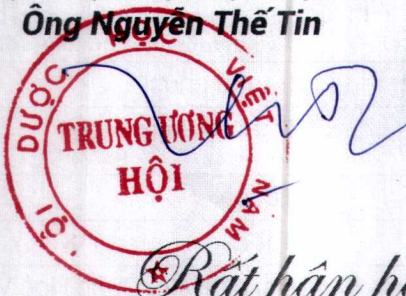 Ông Nguyễn Thế Tin
HỘI DƯỢC HỌC VIỆT NAM
TRUNG ƯƠNG
HỘI
Rất hân h